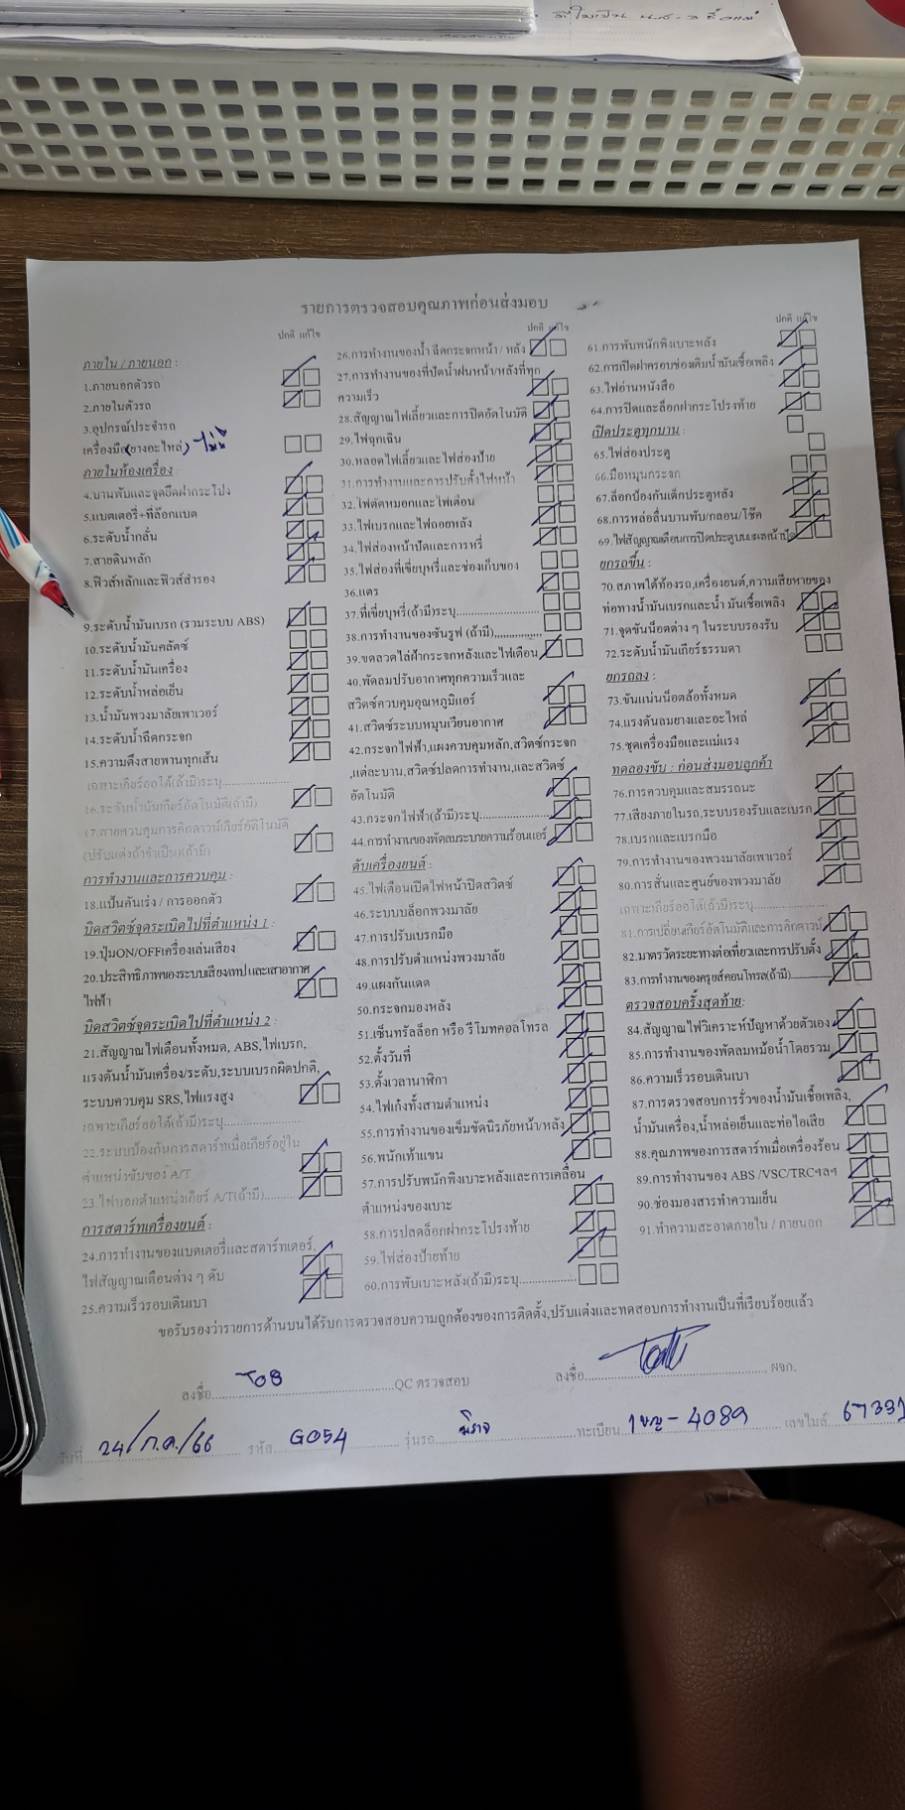 รายการตรวจสอบคุณภาพก่อนส่งมอบ
ปกติ แก้ไข
ภายใน / ภายนอก :
1.ภายนอกตัวรถ
2.ภายในตัวรถ
3.อุปกรณ์ประจำรถ
เครื่องมือ(ยางอะไหล่) ไม่มี
ภายในห้องเครื่อง
4.บานพับและจุดยึดฝากระโปรง
5.แบตเตอรี่+ที่ล็อกแบต
6.ระดับน้ำกลั่น
7.สายดินหลัก
8.ฟิวส์หลักและฟิวส์สำรอง
9.ระดับน้ำมันเบรก (รวมระบบ ABS)
10.ระดับน้ำมันคลัตช์
11.ระดับน้ำมันเครื่อง
12.ระดับน้ำหล่อเย็น
13.น้ำมันพวงมาลัยเพาเวอร์
14.ระดับน้ำฉีดกระจก
15.ความตึงสายพานทุกเส้น
เฉพาะเกียร์ออโต้(ถ้ามี)ระบุ
16.ระดับน้ำมันเกียร์อัตโนมัติ(ถ้ามี)
17.สายควบคุมการคิกดาวน์เกียร์อัติโนมัติ
(ปรับแต่งถ้าจำเป็น)(ถ้ามี)
การทำงานและการควบคุม :
18.แป้นคันเร่ง / การออกตัว
บิดสวิตช์จุดระเบิดไปที่ตำแหน่ง 1 :
19.ปุ่มON/OFFเครื่องเล่นเสียง
20.ประสิทธิภาพของระบบเสียงเทป และเสาอากาศ
ไฟฟ้า
บิดสวิตช์จุดระเบิดไปที่ตำแหน่ง 2 :
21.สัญญาณไฟเตือนทั้งหมด, ABS,ไฟเบรก,
แรงดันน้ำมันเครื่อง/ระดับ,ระบบเบรกผิดปกติ,
ระบบควบคุม SRS,ไฟแรงสูง
เฉพาะเกียร์ออโต้(ถ้ามี)ระบุ
22.ระบบป้องกันการสตาร์ทเมื่อเกียร์อยู่ใน
ตำแหน่งขับของ A/T
23.ไฟบอกตำแหน่งเกียร์ A/T(ถ้ามี)
การสตาร์ทเครื่องยนต์ :
24.การทำงานของแบตเตอรี่และสตาร์ทเตอร์,
ไฟสัญญาณเตือนต่าง ๆ ดับ
25.ความเร็วรอบเดินเบา
ปกติ แก้ไข
26.การทำงานของน้ำฉีดกระจกหน้า / หลัง
27.การทำงานของที่ปัดน้ำฝนหน้า/หลังที่ทุก
ความเร็ว
28.สัญญาณไฟเลี้ยวและการปิดอัตโนมัติ
29.ไฟฉุกเฉิน
30.หลอดไฟเลี้ยวและไฟส่องป้าย
31.การทำงานและการปรับตั้งไฟหน้า
32.ไฟตัดหมอกและไฟเตือน
33.ไฟเบรกและไฟถอยหลัง
34.ไฟส่องหน้าปัดและการหรี่
35.ไฟส่องที่เขี่ยบุหรี่และช่องเก็บของ
36.แตร
37.ที่เขี่ยบุหรี่(ถ้ามี)ระบุ
38.การทำงานของซันรูฟ (ถ้ามี)
39.ขดลวดไล่ฝ้ากระจกหลังและไฟเตือน
40.พัดลมปรับอากาศทุกความเร็วและ
สวิตช์ควบคุมอุณหภูมิแอร์
41.สวิตช์ระบบหมุนเวียนอากาศ
42.กระจกไฟฟ้า,แผงควบคุมหลัก,สวิตช์กระจก
,แต่ละบาน,สวิตช์ปลดการทำงาน,และสวิตช์
อัตโนมัติ
43.กระจกไฟฟ้า(ถ้ามี)ระบุ
44.การทำงานของพัดลมระบายความร้อนแอร์
ดับเครื่องยนต์ :
45.ไฟเตือนเปิดไฟหน้าปิดสวิตช์
46.ระบบบล็อกพวงมาลัย
47.การปรับเบรกมือ
48.การปรับตำแหน่งพวงมาลัย
49.แผงกันแดด
50.กระจกมองหลัง
51.เซ็นทรัลล็อก หรือ รีโมทคอลโทรล
52.ตั้งวันที่
53.ตั้งเวลานาฬิกา
54.ไฟเก๋งทั้งสามตำแหน่ง
55.การทำงานของเข็มขัดนิรภัยหน้า/หลัง
56.พนักเท้าแขน
57.การปรับพนักพิงเบาะหลังและการเคลื่อน
ตำแหน่งของเบาะ
58.การปลดล็อกฝากระโปรงท้าย
59.ไฟส่องป้ายท้าย
60.การพับเบาะหลัง(ถ้ามี)ระบุ
ปกติ แก้ไข
61.การพับพนักพิงเบาะหลัง
62.การเปิดฝาครอบช่องเติมน้ำมันเชื้อเพลิง
63.ไฟอ่านหนังสือ
64.การปิดและล็อกฝากระโปรงท้าย
เปิดประตูทุกบาน :
65.ไฟส่องประตู
66.มือหมุนกระจก
67.ล็อกป้องกันเด็กประตูหลัง
68.การหล่อลื่นบานพับ/กลอน/โช๊ค
69.ไฟสัญญาณเตือนการปิดประตู
ยกรถขึ้น :
70.สภาพใต้ท้องรถ,เครื่องยนต์,ความเสียหายของ
ท่อทางน้ำมันเบรกและน้ำมันเชื้อเพลิง
71.จุดขันน็อตต่าง ๆ ในระบบรองรับ
72.ระดับน้ำมันเกียร์ธรรมดา
ยกรถลง :
73.ขันแน่นน็อตล้อทั้งหมด
74.แรงดันลมยางและอะไหล่
75.ชุดเครื่องมือและแม่แรง
ทดลองขับ : ก่อนส่งมอบลูกค้า
76.การควบคุมและสมรรถนะ
77.เสียงภายในรถ,ระบบรองรับและเบรก
78.เบรกและเบรกมือ
79.การทำงานของพวงมาลัยเพาเวอร์
80.การสั่นและศูนย์ของพวงมาลัย
เฉพาะเกียร์ออโต้(ถ้ามี)ระบุ
81.การเปลี่ยนเกียร์อัตโนมัติและการคิกดาวน์
82.มาตรวัดระยะทางต่อเที่ยวและการปรับตั้ง
83.การทำงานของครูยส์คอนโทรล(ถ้ามี)
ตรวจสอบครั้งสุดท้าย:
84.สัญญาณไฟวิเคราะห์ปัญหาด้วยตัวเอง
85.การทำงานของพัดลมหม้อน้ำโดยรวม
86.ความเร็วรอบเดินเบา
87.การตรวจสอบการรั่วของน้ำมันเชื้อเพลิง,
น้ำมันเครื่อง,น้ำหล่อเย็นและท่อไอเสีย
88.คุณภาพของการสตาร์ทเมื่อเครื่องร้อน
89.การทำงานของ ABS /VSC/TRCฯลฯ
90.ช่องมองสารทำความเย็น
91.ทำความสะอาดภายใน / ภายนอก
ขอรับรองว่ารายการด้านบนได้รับการตรวจสอบความถูกต้องของการติดตั้ง,ปรับแต่งและทดสอบการทำงานเป็นที่เรียบร้อยแล้ว
ลงชื่อ QC ตรวจสอบ ลงชื่อ ผจก.
วันที่ 24/ก.ค./66 รหัส G054 รุ่นรถ มิราจ ทะเบียน 1ขญ-4089 เลขไมล์ 67331